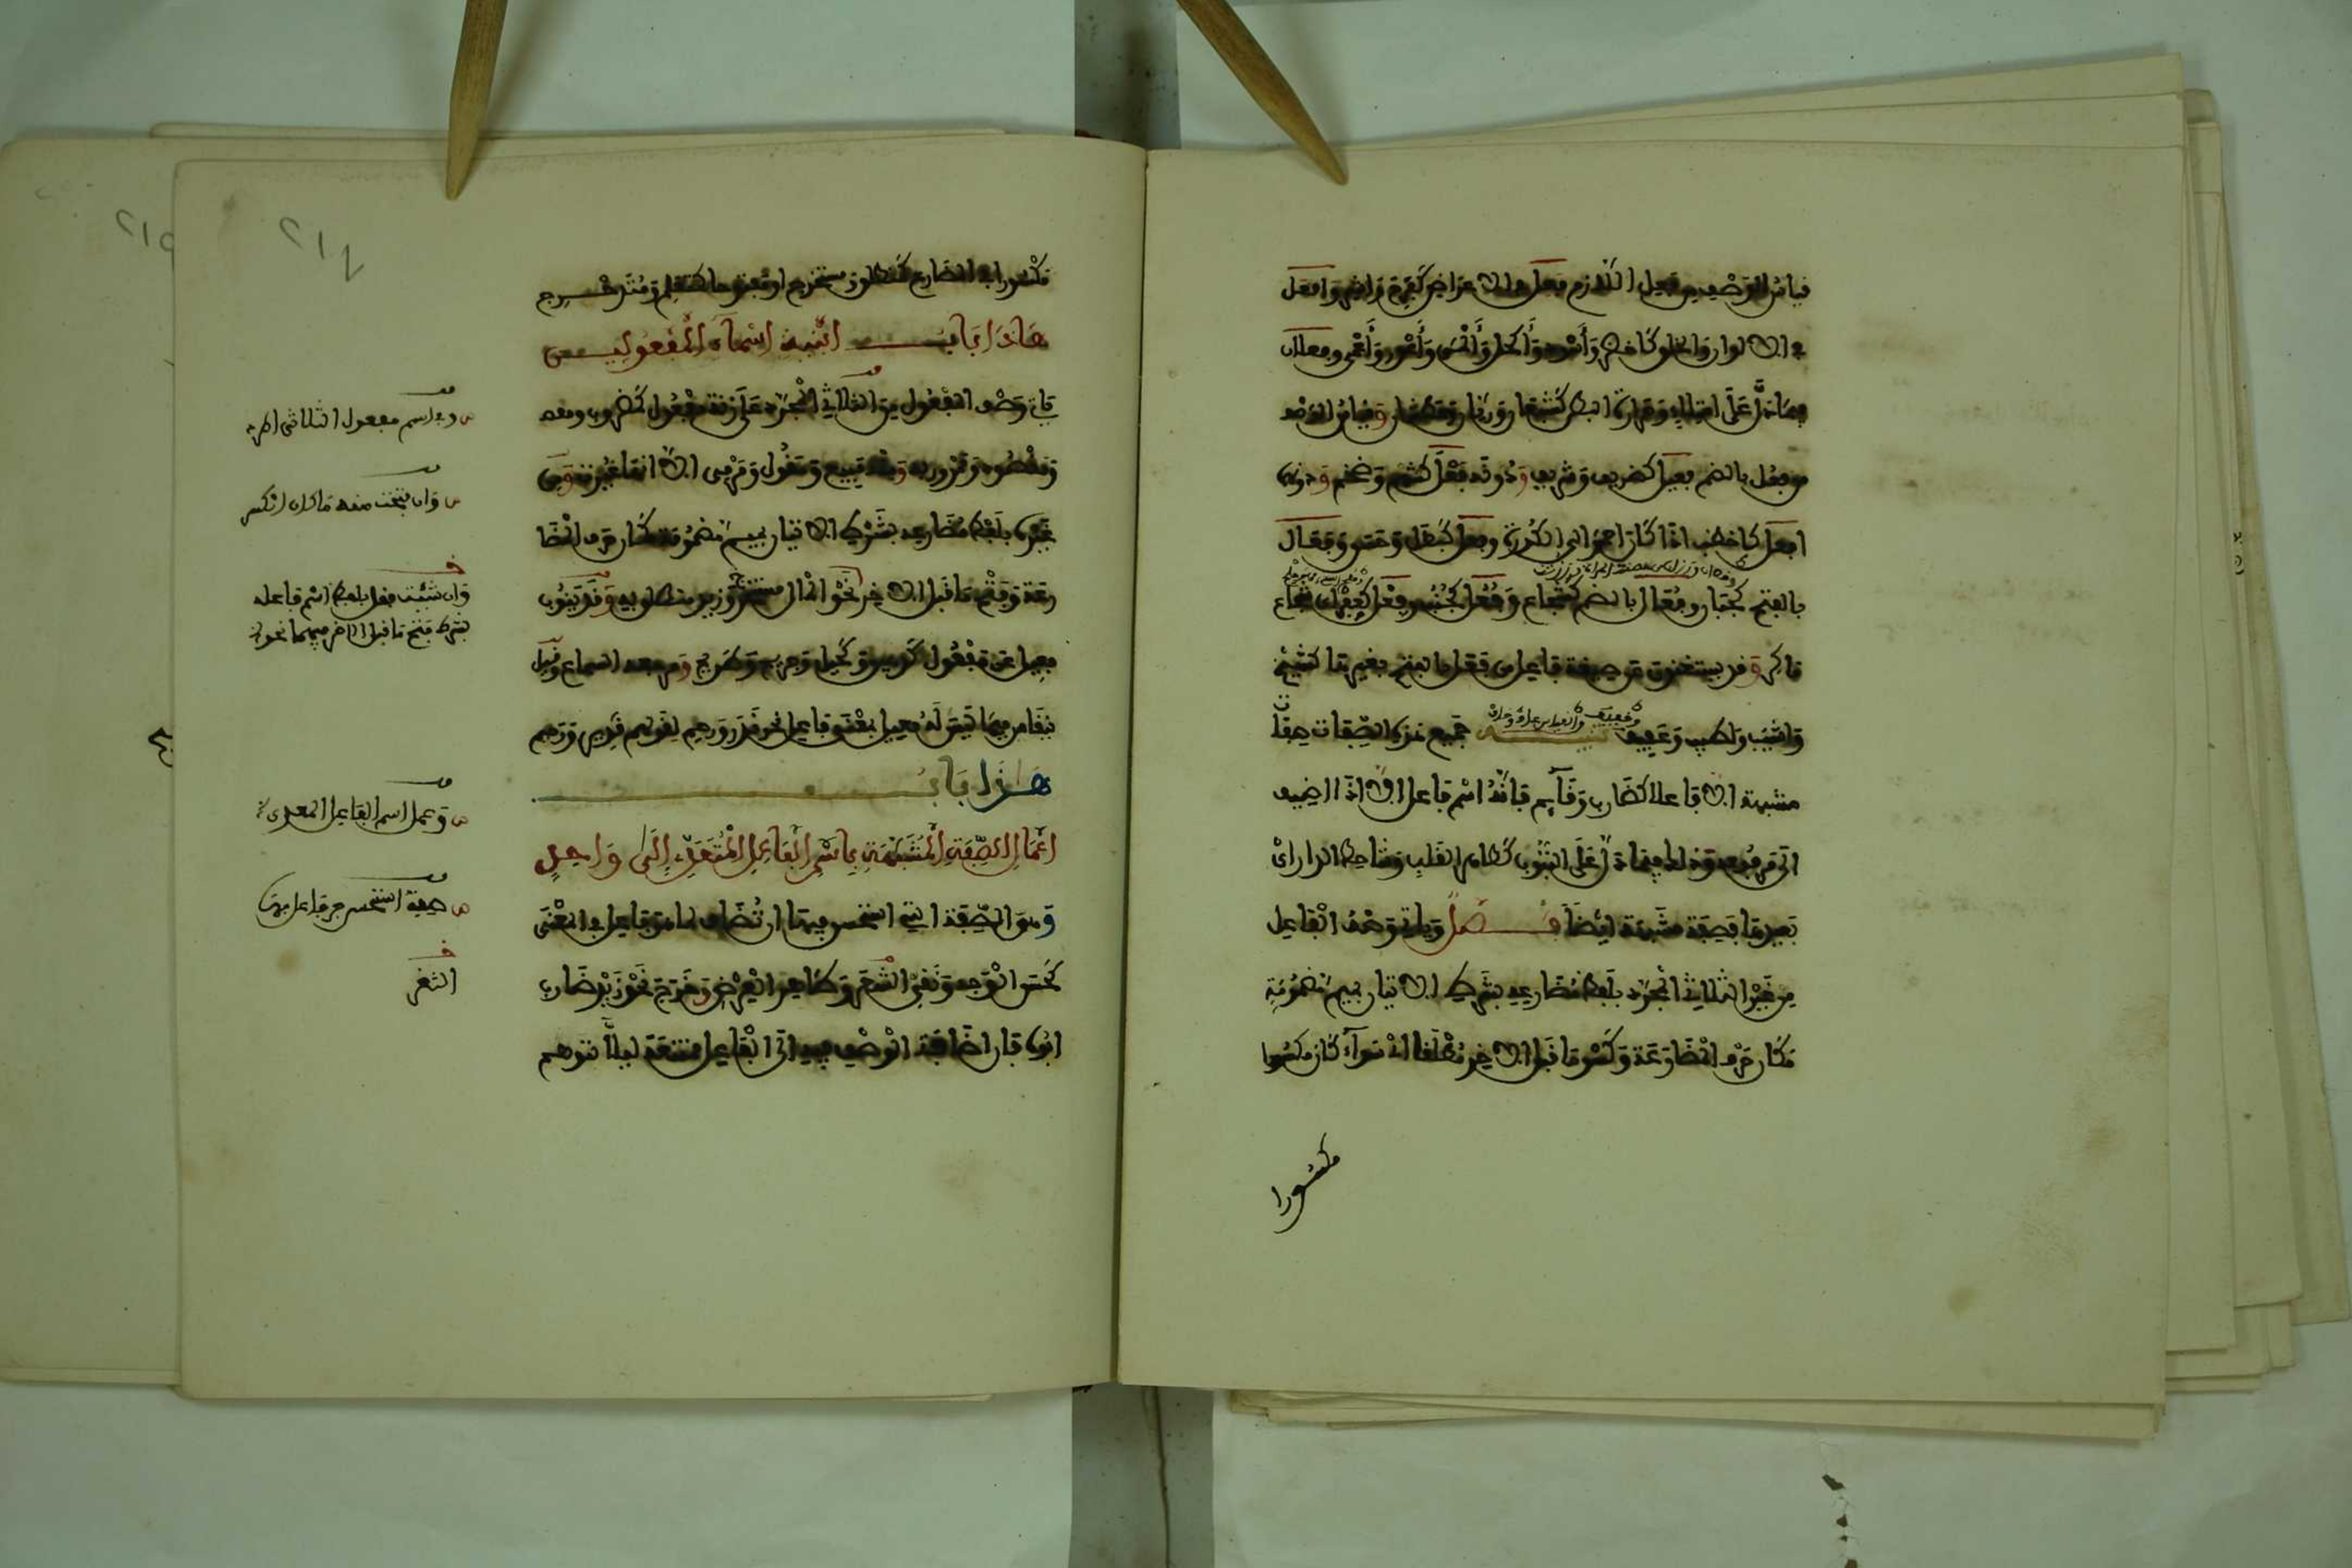 قياس الوصف من فعل اللازم فعل في الاعراض كفرح واشر وافعل
في الالوان والخلق كاخضر وأسود وأكحل وأعور وأعمى وفعلان
فيما دل على امتلاء وحرارة البطن كشبعان وريان وعطشان وقياس الوصف
من فعل بالضم فعيل كظريف وشريف ودونه فعل كشهم وضخم ودونهما
افعل كاخطب اذا كان احمر الى الكدرة وفعل كبطل وحسن وفعال
بالفتح كجبان وفعال بالضم كشجاع وفعل كجنب وفعل كعفر اي شجاع
ماكر وقد يستغنون عن صيغة فاعل من فعل بالفتح بغيرها كشيخ
واشيب وطيب وعفيف تنبيه جميع هذه الصفات صفات
مشبهة الا فاعلا كضارب وقائم فانه اسم فاعل الا اذا اضيف
الى مرفوعه وذلك فيما دل على الثبوت كطاهر القلب وشاحط الدار اي
بعيدها فصفة مشبهة ايضا فصل وياتي وصف الفاعل
من غير الثلاثي المجرد بلفظ مضارعه بشرط الاتيان بميم مضمومة
مكان حرف المضارعة وكسر ما قبل الاخر مطلقا اي سواء كان مكسورا
مكسورا
مكسورا في المضارع كمنطلق ومستخرج او مفتوحا كمتعلم ومتدحرج
هاذا باب ابنية اسماء المفعولين
ياتي وصف المفعول من الثلاثي المجرد على زنة مفعول كمضروب ومنه
ومقصود وممرور به ومنه مبيع ومقول ومرمي الا انها غيرت ومن
غيره بلفظ مضارعه بشرط الاتيان بميم مضمومة مكان حرف المضا
رعة وفتح ما قبل الاخر نحو المال مستخرج وزيد منطلق به وقد ينوب
فعيل عن مفعول كدهين وكحيل وجريح وطريح ومرجعه السماع وقيل
ينقاس فيما ليس له فعيل بمعنى فاعل نحو قدر ورحم لقولهم قدير ورحيم
هذا باب
اعمال الصفة المشبهة باسم الفاعل المتعدي إلى واحد
وهي الصفة التي استحسن فيها ان تضاف لما هو فاعل في المعنى
كحسن الوجه ونقي الثغر وطاهر العرض وخرج نحو زيد ضارب
ابوه فان اضافة الوصف فيه الى الفاعل ممتنعة ليلا توهم
ص وفي اسم مفعول الثلاثي اطرد
ص وان فتحت منه ما كان انكسر
وان شئت فقل بلفظ اسم فاعله
بشرط فتح ما قبل الاخر فيهما نحو
ص وعمل اسم الفاعل المعدى
ص صفة استحسن جر فاعل بها
الثغر